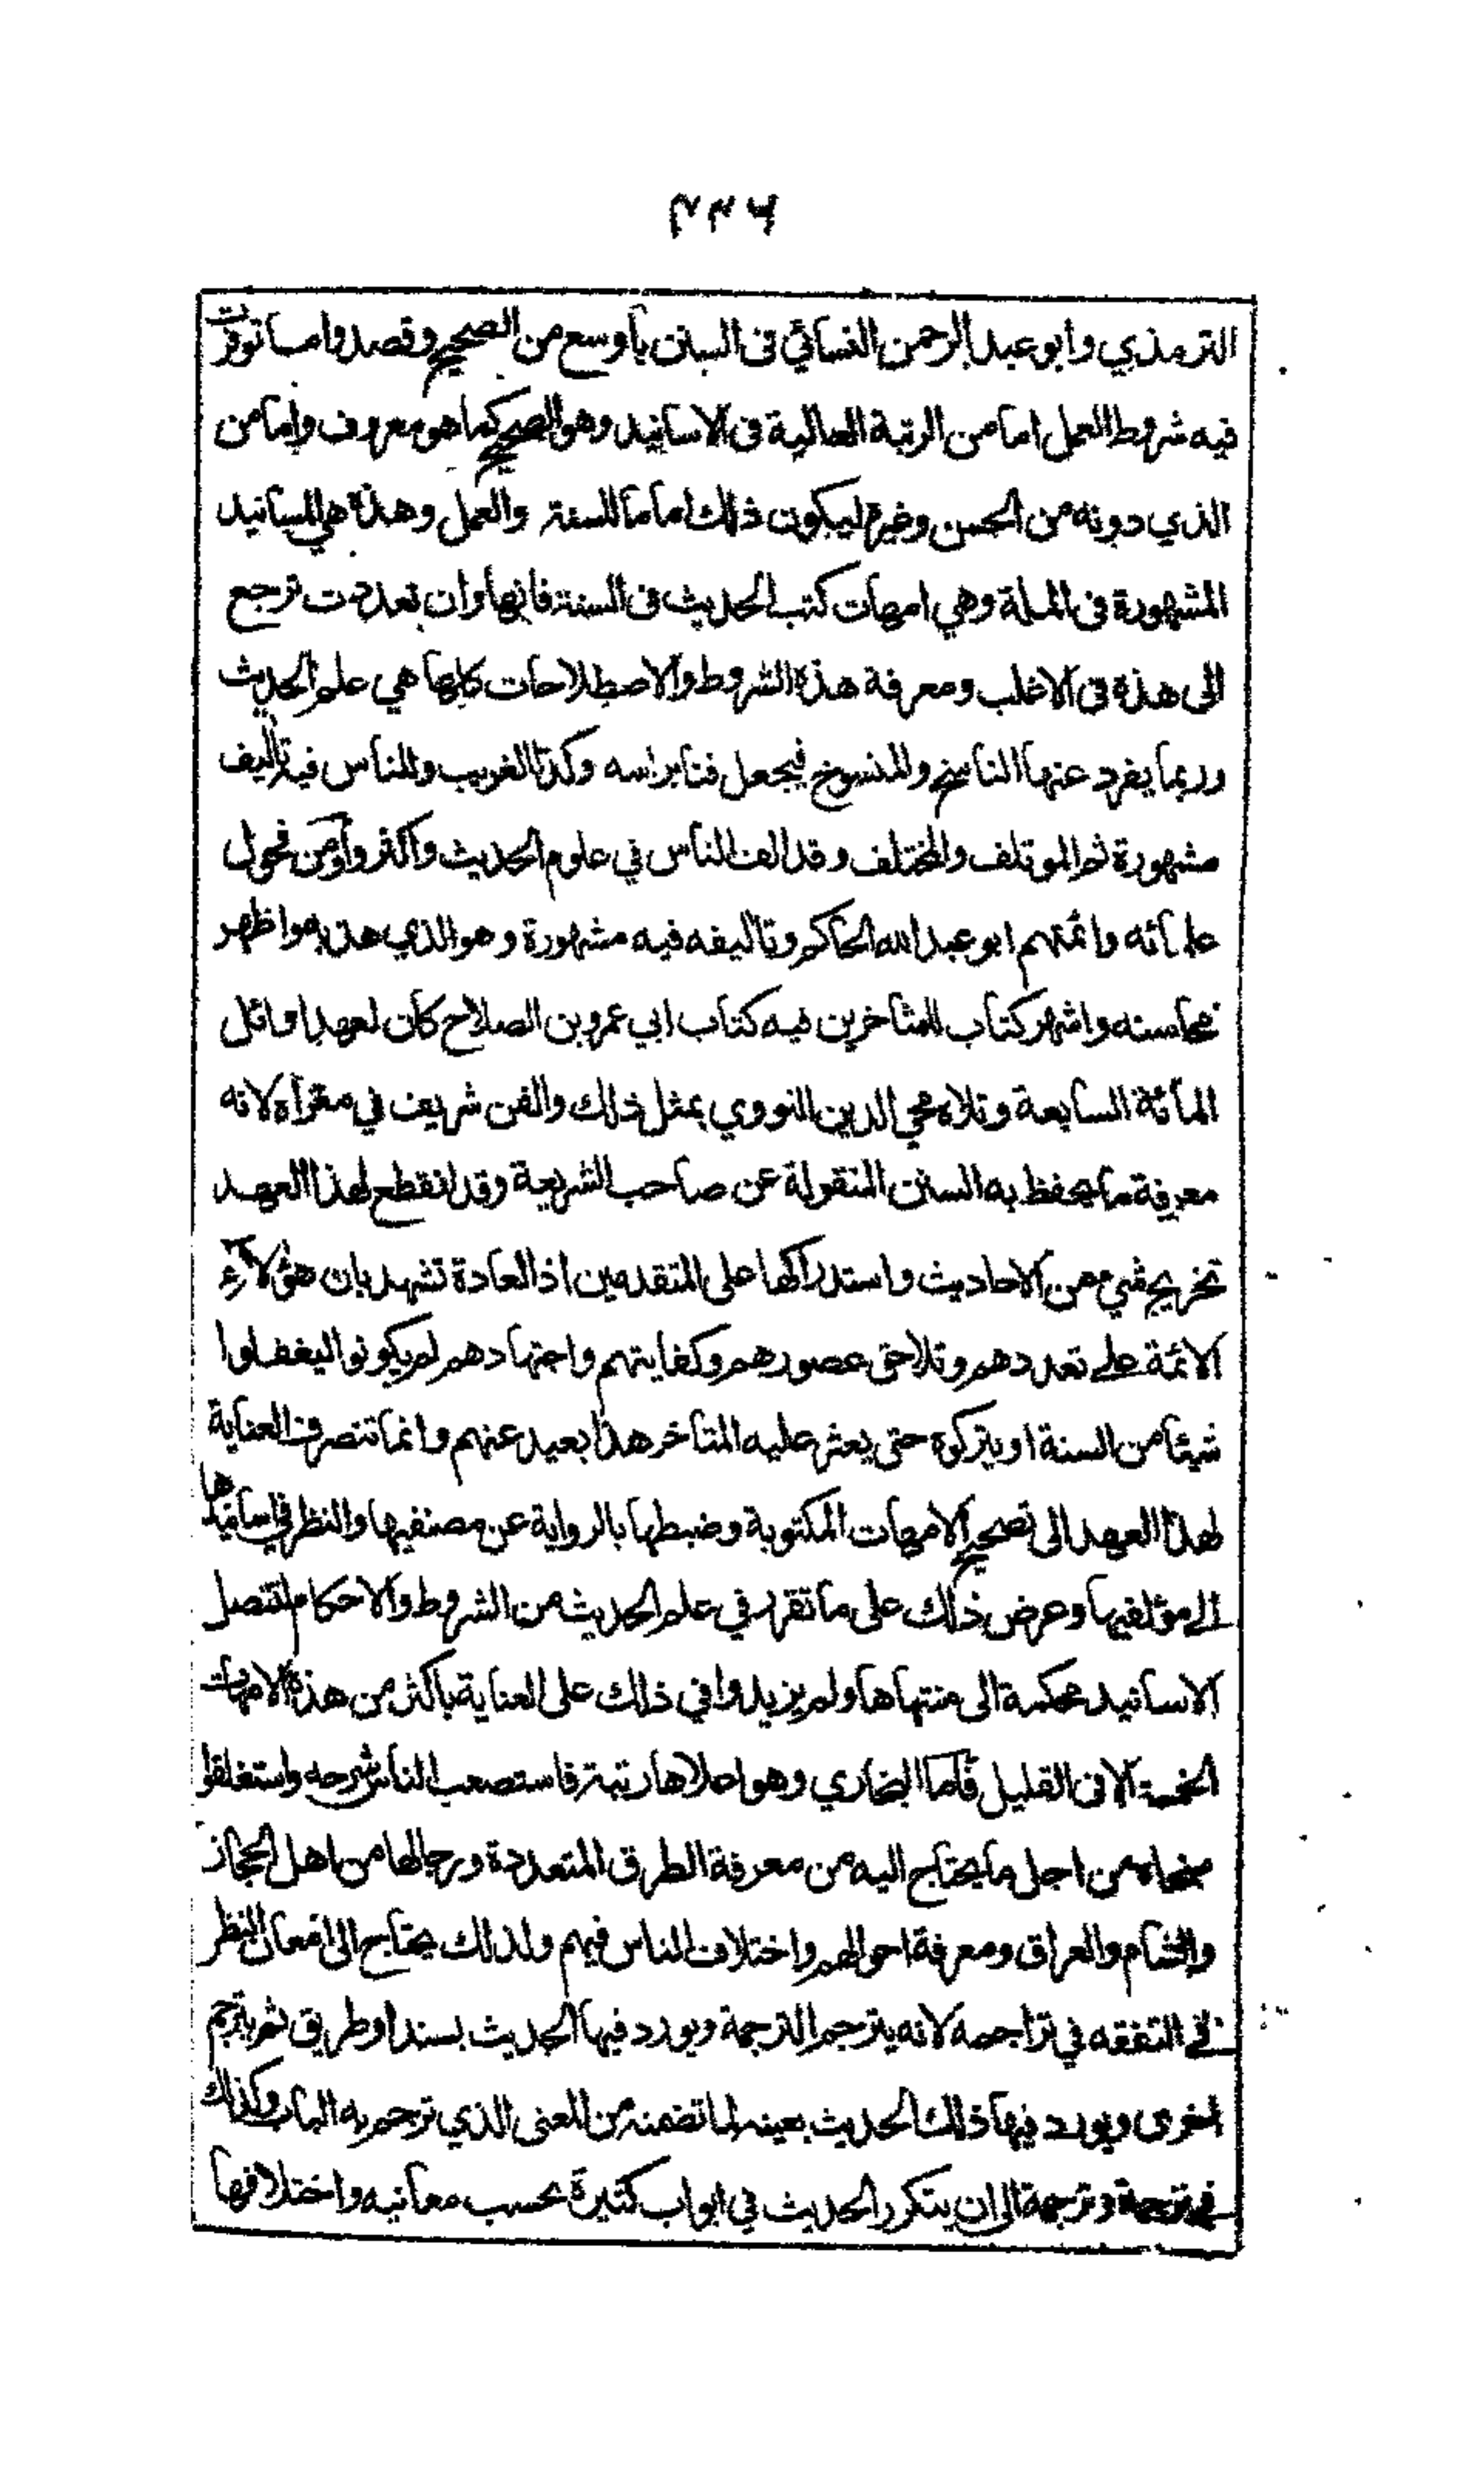 ۲۲۶
الترمذي وابو عبد الرحمن النسائي فى السنن بأوسع من الصحيح وقصدوا ما توفرت
فيه شروط العمل اما من الرتبة العالية فى الاسانيد وهو الصحيح كما هو معروف واما من
الذي دونه من الحسن وغيره ليكون ذلك اماما للسنة والعمل وهذه هي المسانيد
المشهورة فى الملة وهي امهات كتب الحديث فى السنة فانها وان تعددت ترجع
الى هذه فى الاغلب ومعرفة هذه الشروط والاصطلاحات كلها هي علم الحديث
وربما يفرد عنها الناسخ والمنسوخ فيجعل فنا براسه وكذا الغريب وللناس فيه تأليف
مشهورة ثم الموتلف والمختلف وقد الف الناس في علوم الحديث واكثروا ومن فحول
علمائه وائمتهم ابو عبد الله الحاكم وتاليفه فيه مشهورة وهو الذي هذبه واظهر
محاسنه واشهر كتاب للمتاخرين فيه كتاب ابي عمرو بن الصلاح كان لعهد اوائل
المائة السابعة وتلاه محي الدين النووي بمثل ذلك والفن شريف في مغزاه لانه
معرفة ما يحفظ به السنن المنقولة عن صاحب الشريعة وقد انقطع لهذا العهد
تخريج شيء من الاحاديث واستدراكها على المتقدمين اذ العادة تشهد بان هؤلاء
الائمة على تعددهم وتلاحق عصورهم وكفايتهم واجتهادهم لم يكونوا ليغفلوا
شيئا من السنة او يتركوه حتى يعثر عليه المتاخر هذا بعيد عنهم وانما تنصرف العناية
لهذا العهد الى تصحيح الامهات المكتوبة وضبطها بالرواية عن مصنفيها والنظر في اسانيدها
الى مؤلفيها وعرض ذلك على ما تقرر في علم الحديث من الشروط والاحكام لتتصل
الاسانيد محكمة الى منتهاها ولم يزيدوا في ذلك على العناية باكثر من هذه الامهات
الخمسة الا فى القليل فاما البخاري وهو اعلاها رتبة فاستصعب الناس شرحه واستغلقوا
منحاه من اجل ما يحتاج اليه من معرفة الطرق المتعددة ورجالها من اهل الحجاز
والشام والعراق ومعرفة احوالهم واختلاف الناس فيهم ولذلك يحتاج الى امعان النظر
في التفقه في تراجمه لانه يترجم الترجمة ويورد فيها الحديث بسند او طريق ثم يترجم
اخرى ويورد فيها ذلك الحديث بعينه لما تضمنه من المعنى الذي ترجم به الباب وكذلك
في ترجمة وترجمة الى ان يتكرر الحديث في ابواب كثيرة بحسب معانيه واختلافها